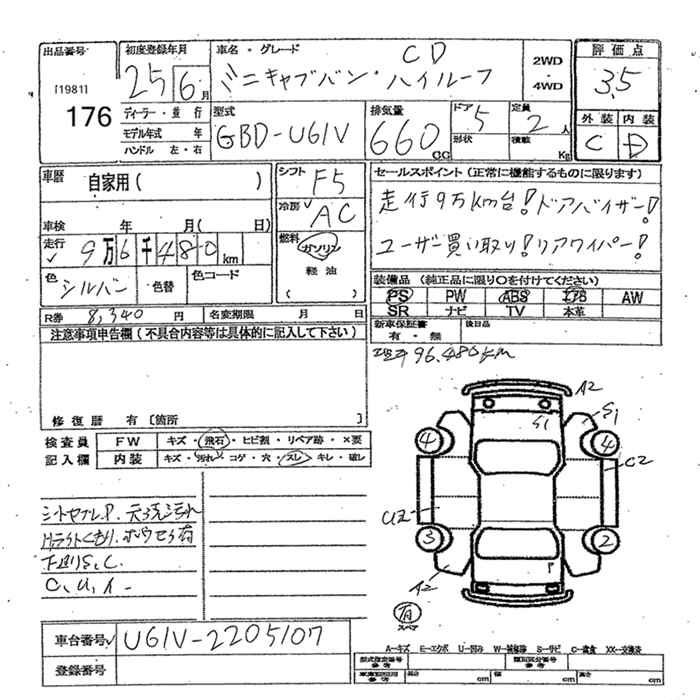 出品番号
[1981]
176
初度登録年月
25 6月
ディーラー・並行
モデル年式 年
ハンドル 左・右
車名・グレード
CD
ミニキャブバン・ハイルーフ
2WD
・
4WD
評価点
3.5
外装 内装
C D
型式
GBD-U61V
排気量
660 CC
ドア 5
形状
定員 2 人
積載 Kg
車歴 自家用( )
車検 年 月( 日)
走行 9万6千480km
色 シルバー 色替 色コード
シフト F5
冷房 AC
燃料 ガソリン
軽油
( )
セールスポイント(正常に機能するものに限ります)
走行9万km台!ドアバイザー!
ユーザー買い取り!リアワイパー!
装備品(純正品に限り○を付けてください)
PS PW ABS エアB AW
SR ナビ TV 本革
新車保証書 有・無
後日品
R券 8,340 円 名変期限 月 日
注意事項申告欄(不具合内容等は具体的に記入して下さい)
修復歴 有〔箇所 〕
96,480km
検査員記入欄
FW キズ・飛石・ヒビ割・リペア跡・×要
内装 キズ・汚れ・コゲ・穴・スレ・キレ・破レ
A2
S1
S1
4
4
C2
U2
3
2
A2
P
有
スペア
下廻りS,C
C,U,イ-
車台番号 U61V-2205107
登録番号
A-キズ E-エクボ U-凹み W-補修跡 S-サビ C-腐食 XX-交換済
型式指定番号 参考
類別区分番号 参考
長さ cm 幅 cm 高さ cm